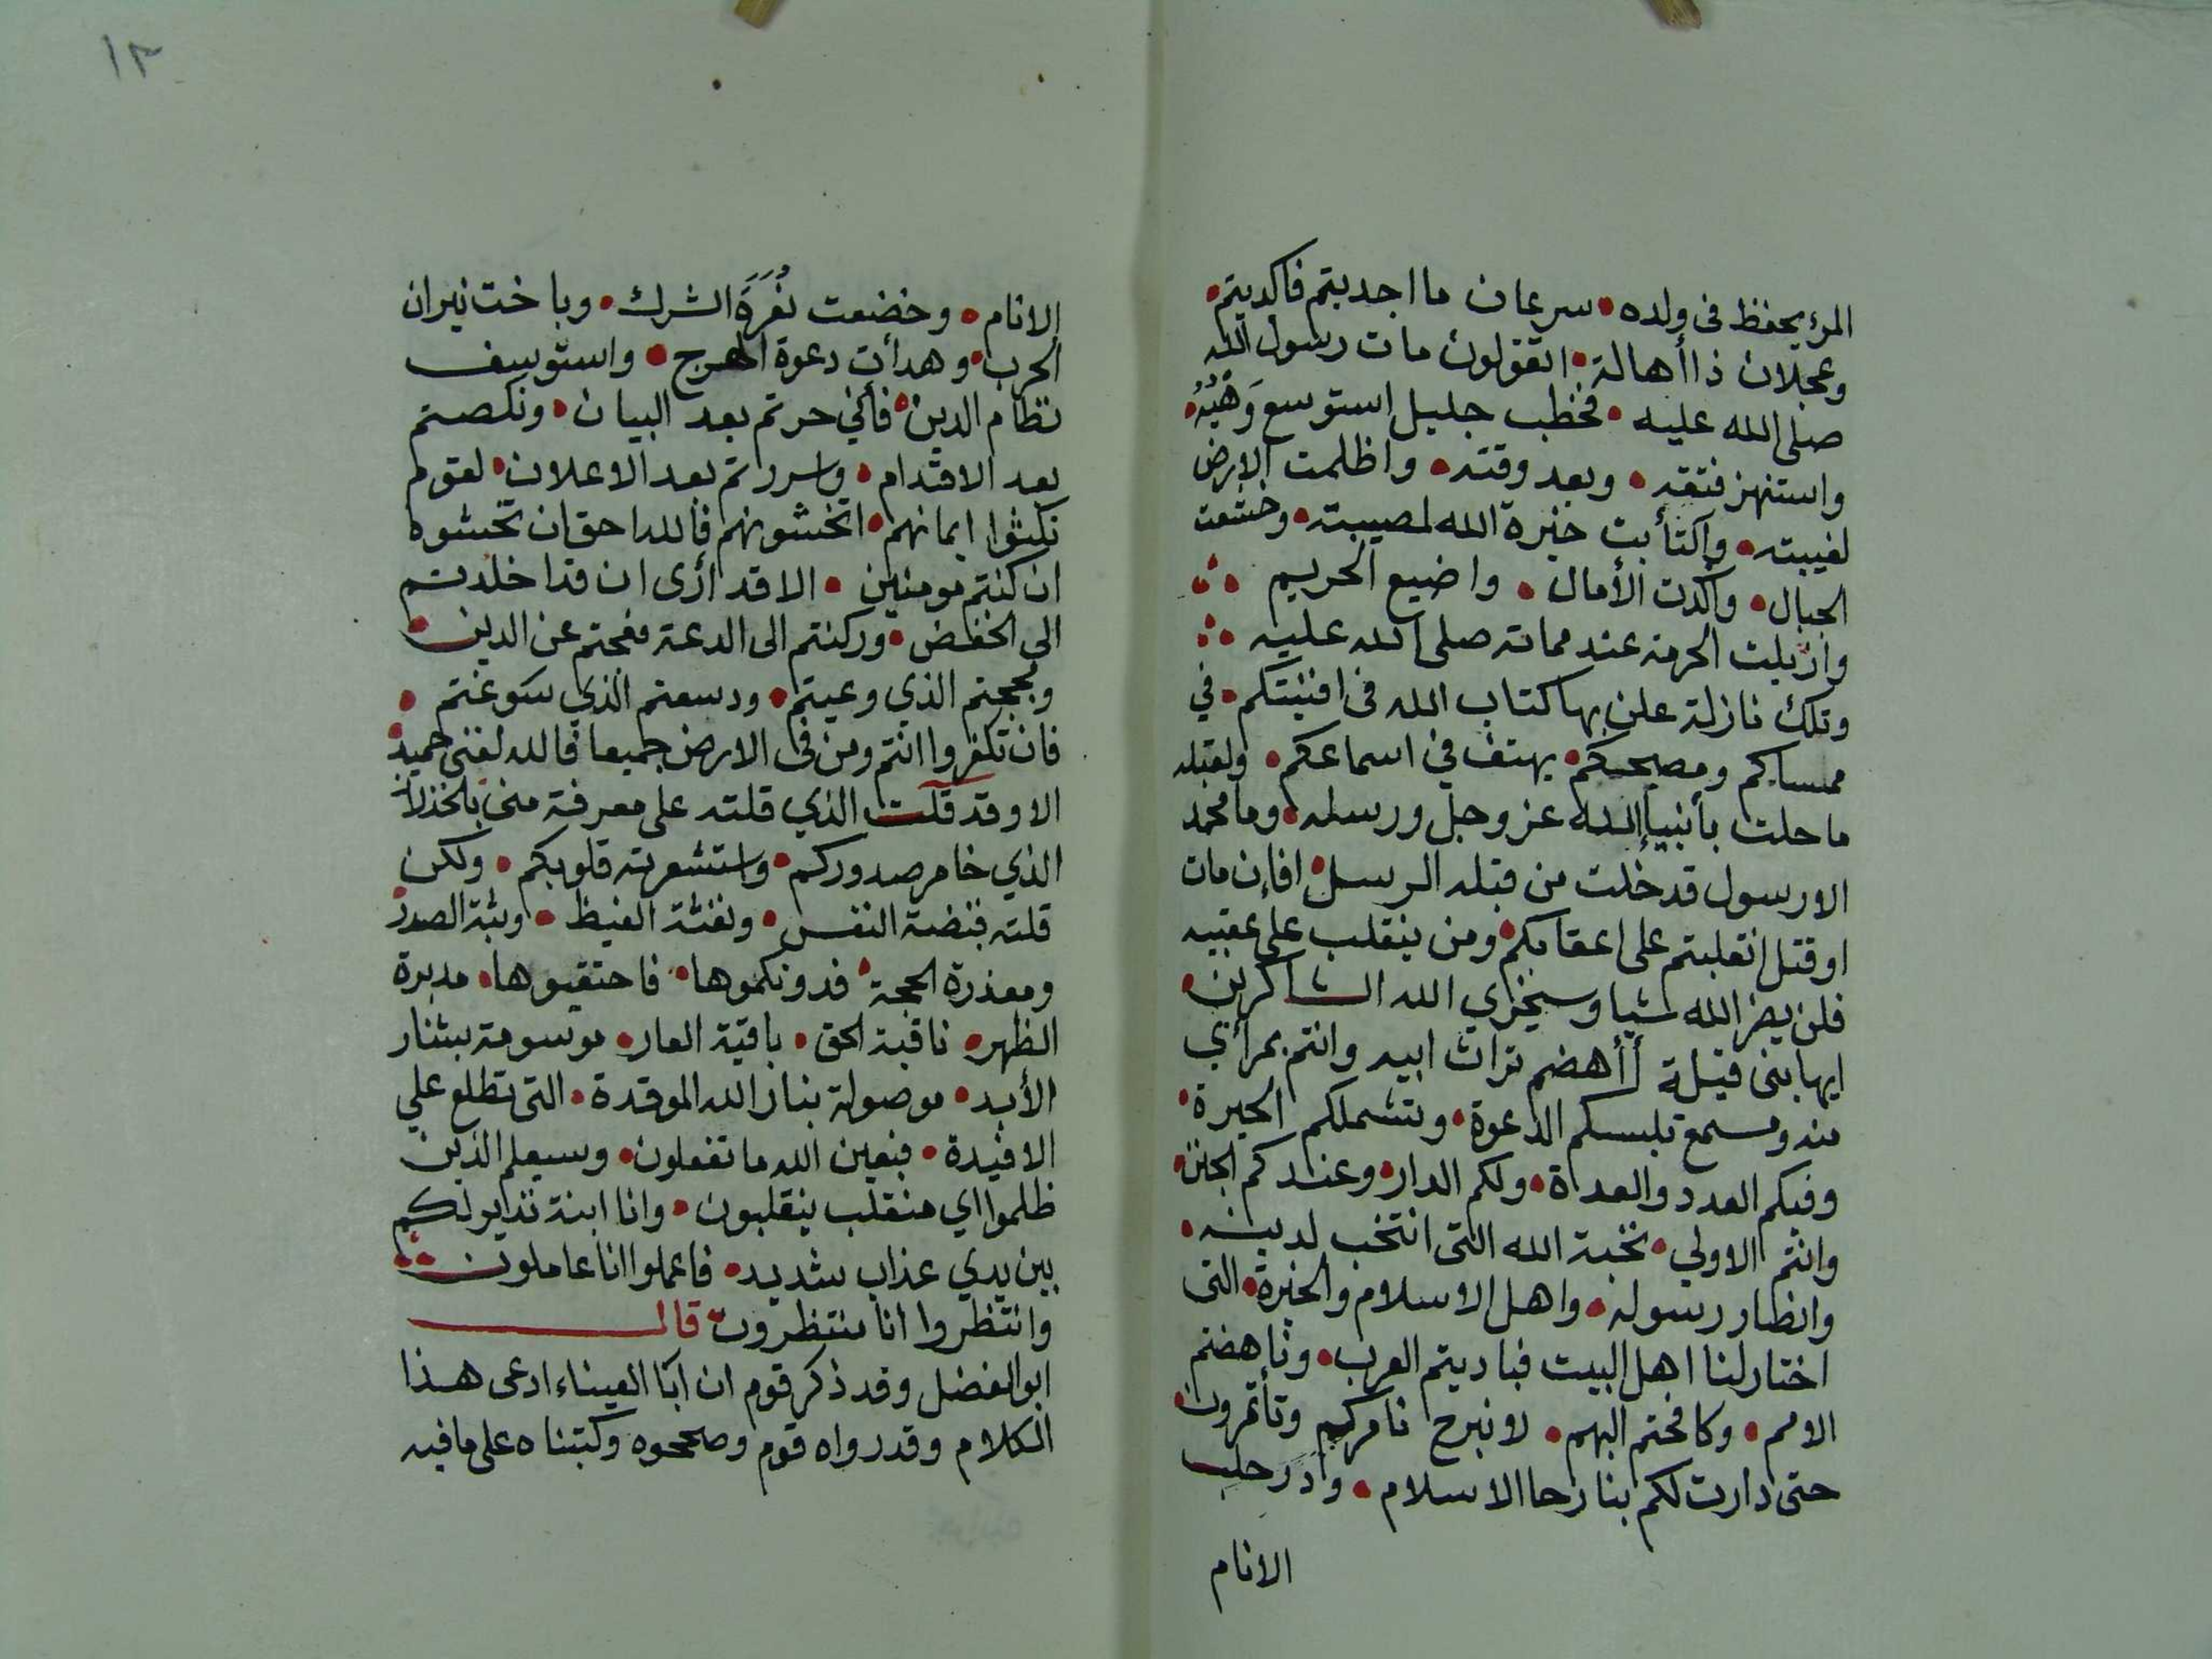 المرء يحفظ فى ولده • سرعان ما اجدبتم فاكديتم •
وعجلان ذا أهالة • اتقولون مات رسول الله
صلى الله عليه • فخطب جليل استوسع وَهْيُهُ •
واستنهز فتقه • وبعد وقته • واظلمت الارض
لغيبته • وأكتأبت خيرة الله لمصيبته • وخشعت
الجبال • وأكدت الأمال • واضيع الحريم ∴
وازيلت الحرمة عند مماته صلى الله عليه ∴
وتلك نازلة علن بها كتاب الله فى افنيتكم • في
ممساكم ومصبحكم • يهتف في اسماعكم • ولقبله
ما حلت بأنبياء الله عز وجل ورسله • وما محمد
الا رسول قد خلت من قبله الرسل • افإن مات
او قتل انقلبتم على اعقابكم • ومن ينقلب على عقبيه
فلن يضر الله شيا وسيجزي الله الشاكرين •
ايها بنى قيلة أأهضم تراث ابيه وانتم بمرأي
منه ومسمع تلبسكم الدعوة • وتشملكم الحيرة •
وفيكم العدد والعداة • ولكم الدار • وعندكم الجنن •
وانتم الاولي • نخبة الله التى انتخب لدينه •
وانظار رسوله • واهل الاسلام والخيرة • التى
اختار لنا اهل البيت فباديتم العرب • وناهضتم
الامم • وكافحتم البهم • لا نبرح نامركم وتأتمرون •
حتى دارت لكم بنا رحا الاسلام • ودر حلب
الانام
١٣
الانام • وخضعت نُعَرَةَ الشرك • وباخت نيران
الحرب • وهدأت دعوة الهرج • واستوسف
نظام الدين • فأني حرتم بعد البيان • ونكصتم
بعد الاقدام • واسررتم بعد الاعلان • لقوم
نكثوا ايمانهم • اتخشونهم فالله احق ان تخشوه
ان كنتم مومنين • الا قد ارى ان قد اخلدتم
الى الخفض • وركنتم الى الدعة فعجتم عن الدين •
ومججتم الذي وعيتم • ودسعتم الذي سوغتم •
فان تكفروا انتم ومن فى الارض جميعا فالله لغنى حميد •
الا وقد قلت الذي قلته على معرفة منى بالخذلان
الذي خامر صدوركم • واستشعرته قلوبكم • ولكن
قلته فيضة النفس • ونفثة الغيظ • وبثة الصدر •
ومعذرة الحجة • فدونكموها • فاحتقبوها • مدبرة
الظهر • ناقبة الحق • باقية العار • موسومة بشنار
الأبد • موصولة بنار الله الموقدة • التى تطلع علي
الافيدة • فبعين الله ما تفعلون • وسيعلم الذين
ظلموا اي منقلب ينقلبون • وانا ابنة نذير لكم
بين يدي عذاب شديد • فاعملوا انا عاملون ∴
وانتظروا انا منتظرون • قال
ابو الفضل وقد ذكر قوم ان أبا العيناء ادعى هذا
الكلام وقد رواه قوم وصححوه وكتبناه على ما فيه